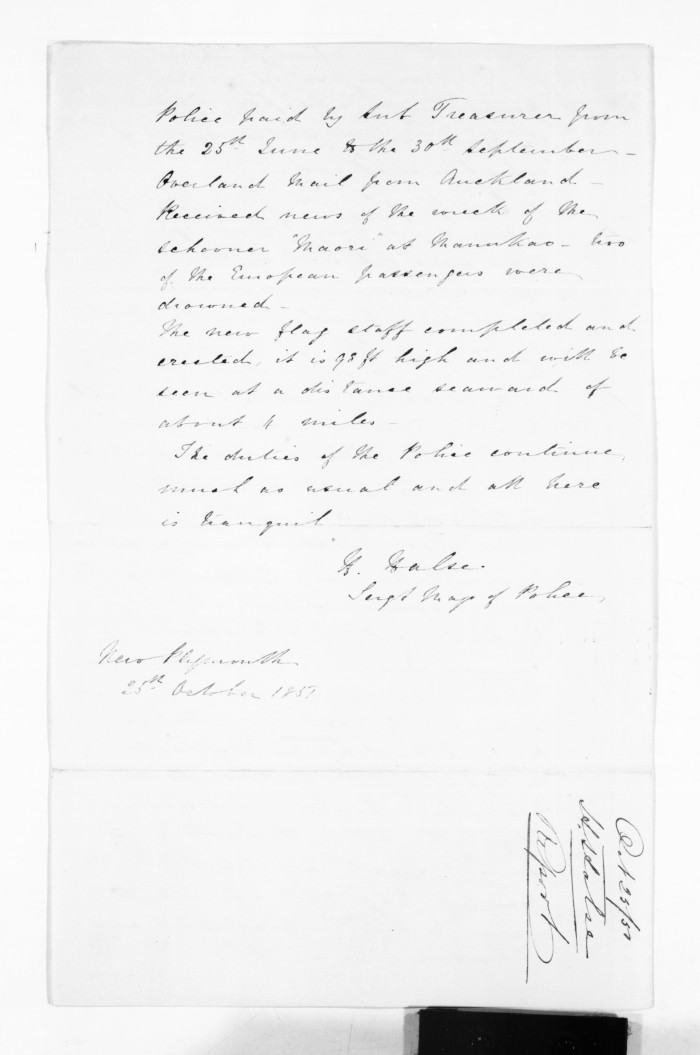 Police paid by Sub Treasurer from
the 25th June to the 30th September –
Overland Mail from Auckland –
Received news of the wreck of the
schooner "Maori" at Manukao – two
of the European passengers were
drowned –
The new flag staff completed and
erected, it is 98 ft high and will be
seen at a distance seaward of
about 11 miles –
The duties of the Police continue
much as usual and all here
is tranquil
H. Halse.
Sergt Majr of Police
New Plymouth
25th October 1851
H. Halse
Report